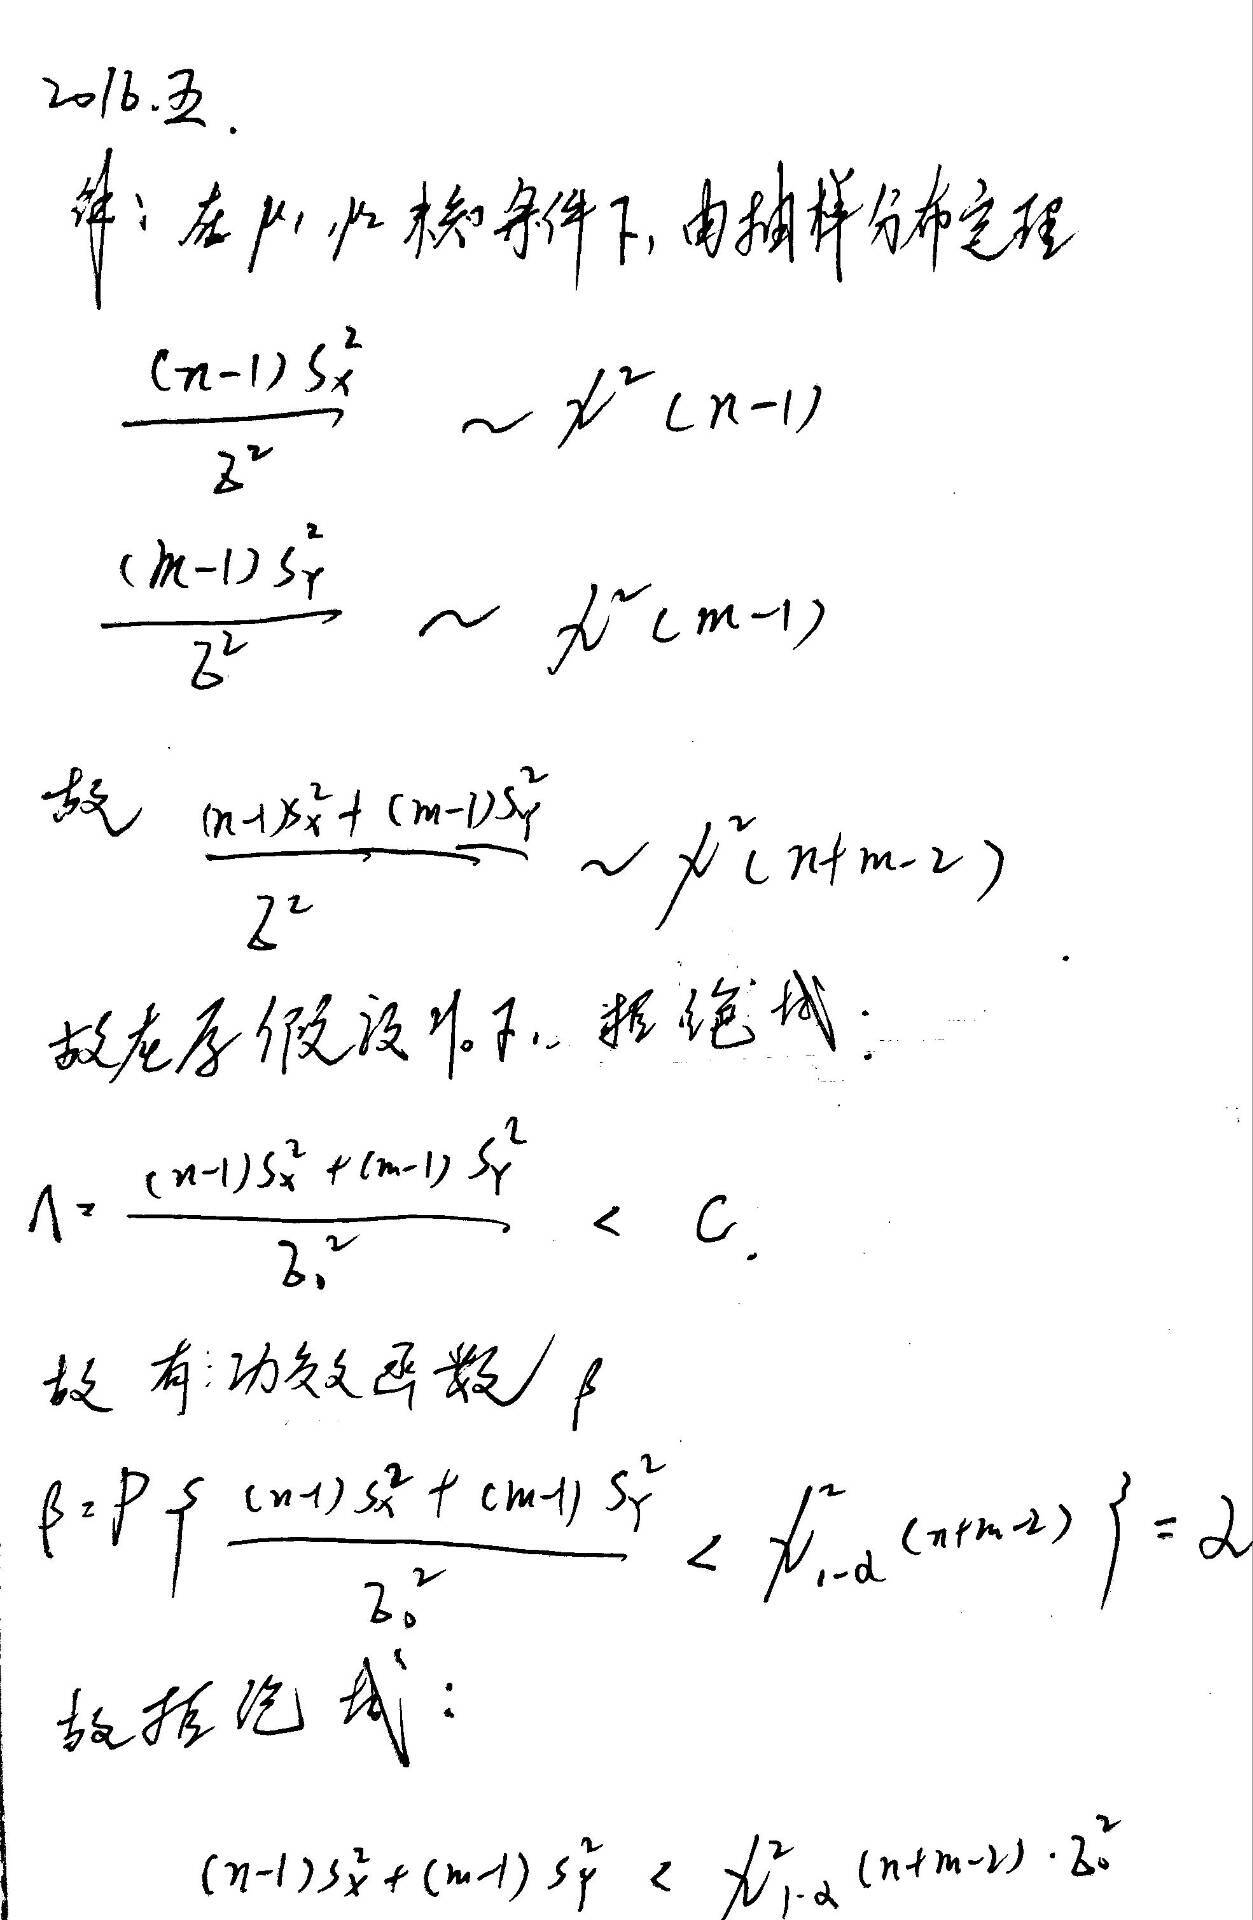 2016.五.
解：在 μ₁,μ₂ 未知条件下,由抽样分布定理
(n-1)S_X² / σ² ~ χ²(n-1)
(m-1)S_Y² / σ² ~ χ²(m-1)
故 ((n-1)S_X² + (m-1)S_Y²) / σ² ~ χ²(n+m-2).
故在原假设H₀下, 拒绝域:
Λ = ((n-1)S_X² + (m-1)S_Y²) / σ₀² < C.
故有:功效函数 β
β = P{ ((n-1)S_X² + (m-1)S_Y²) / σ₀² < χ²_{1-α}(n+m-2) } = α
故拒绝域:
(n-1)S_X² + (m-1)S_Y² < χ²_{1-α}(n+m-2)·σ₀²